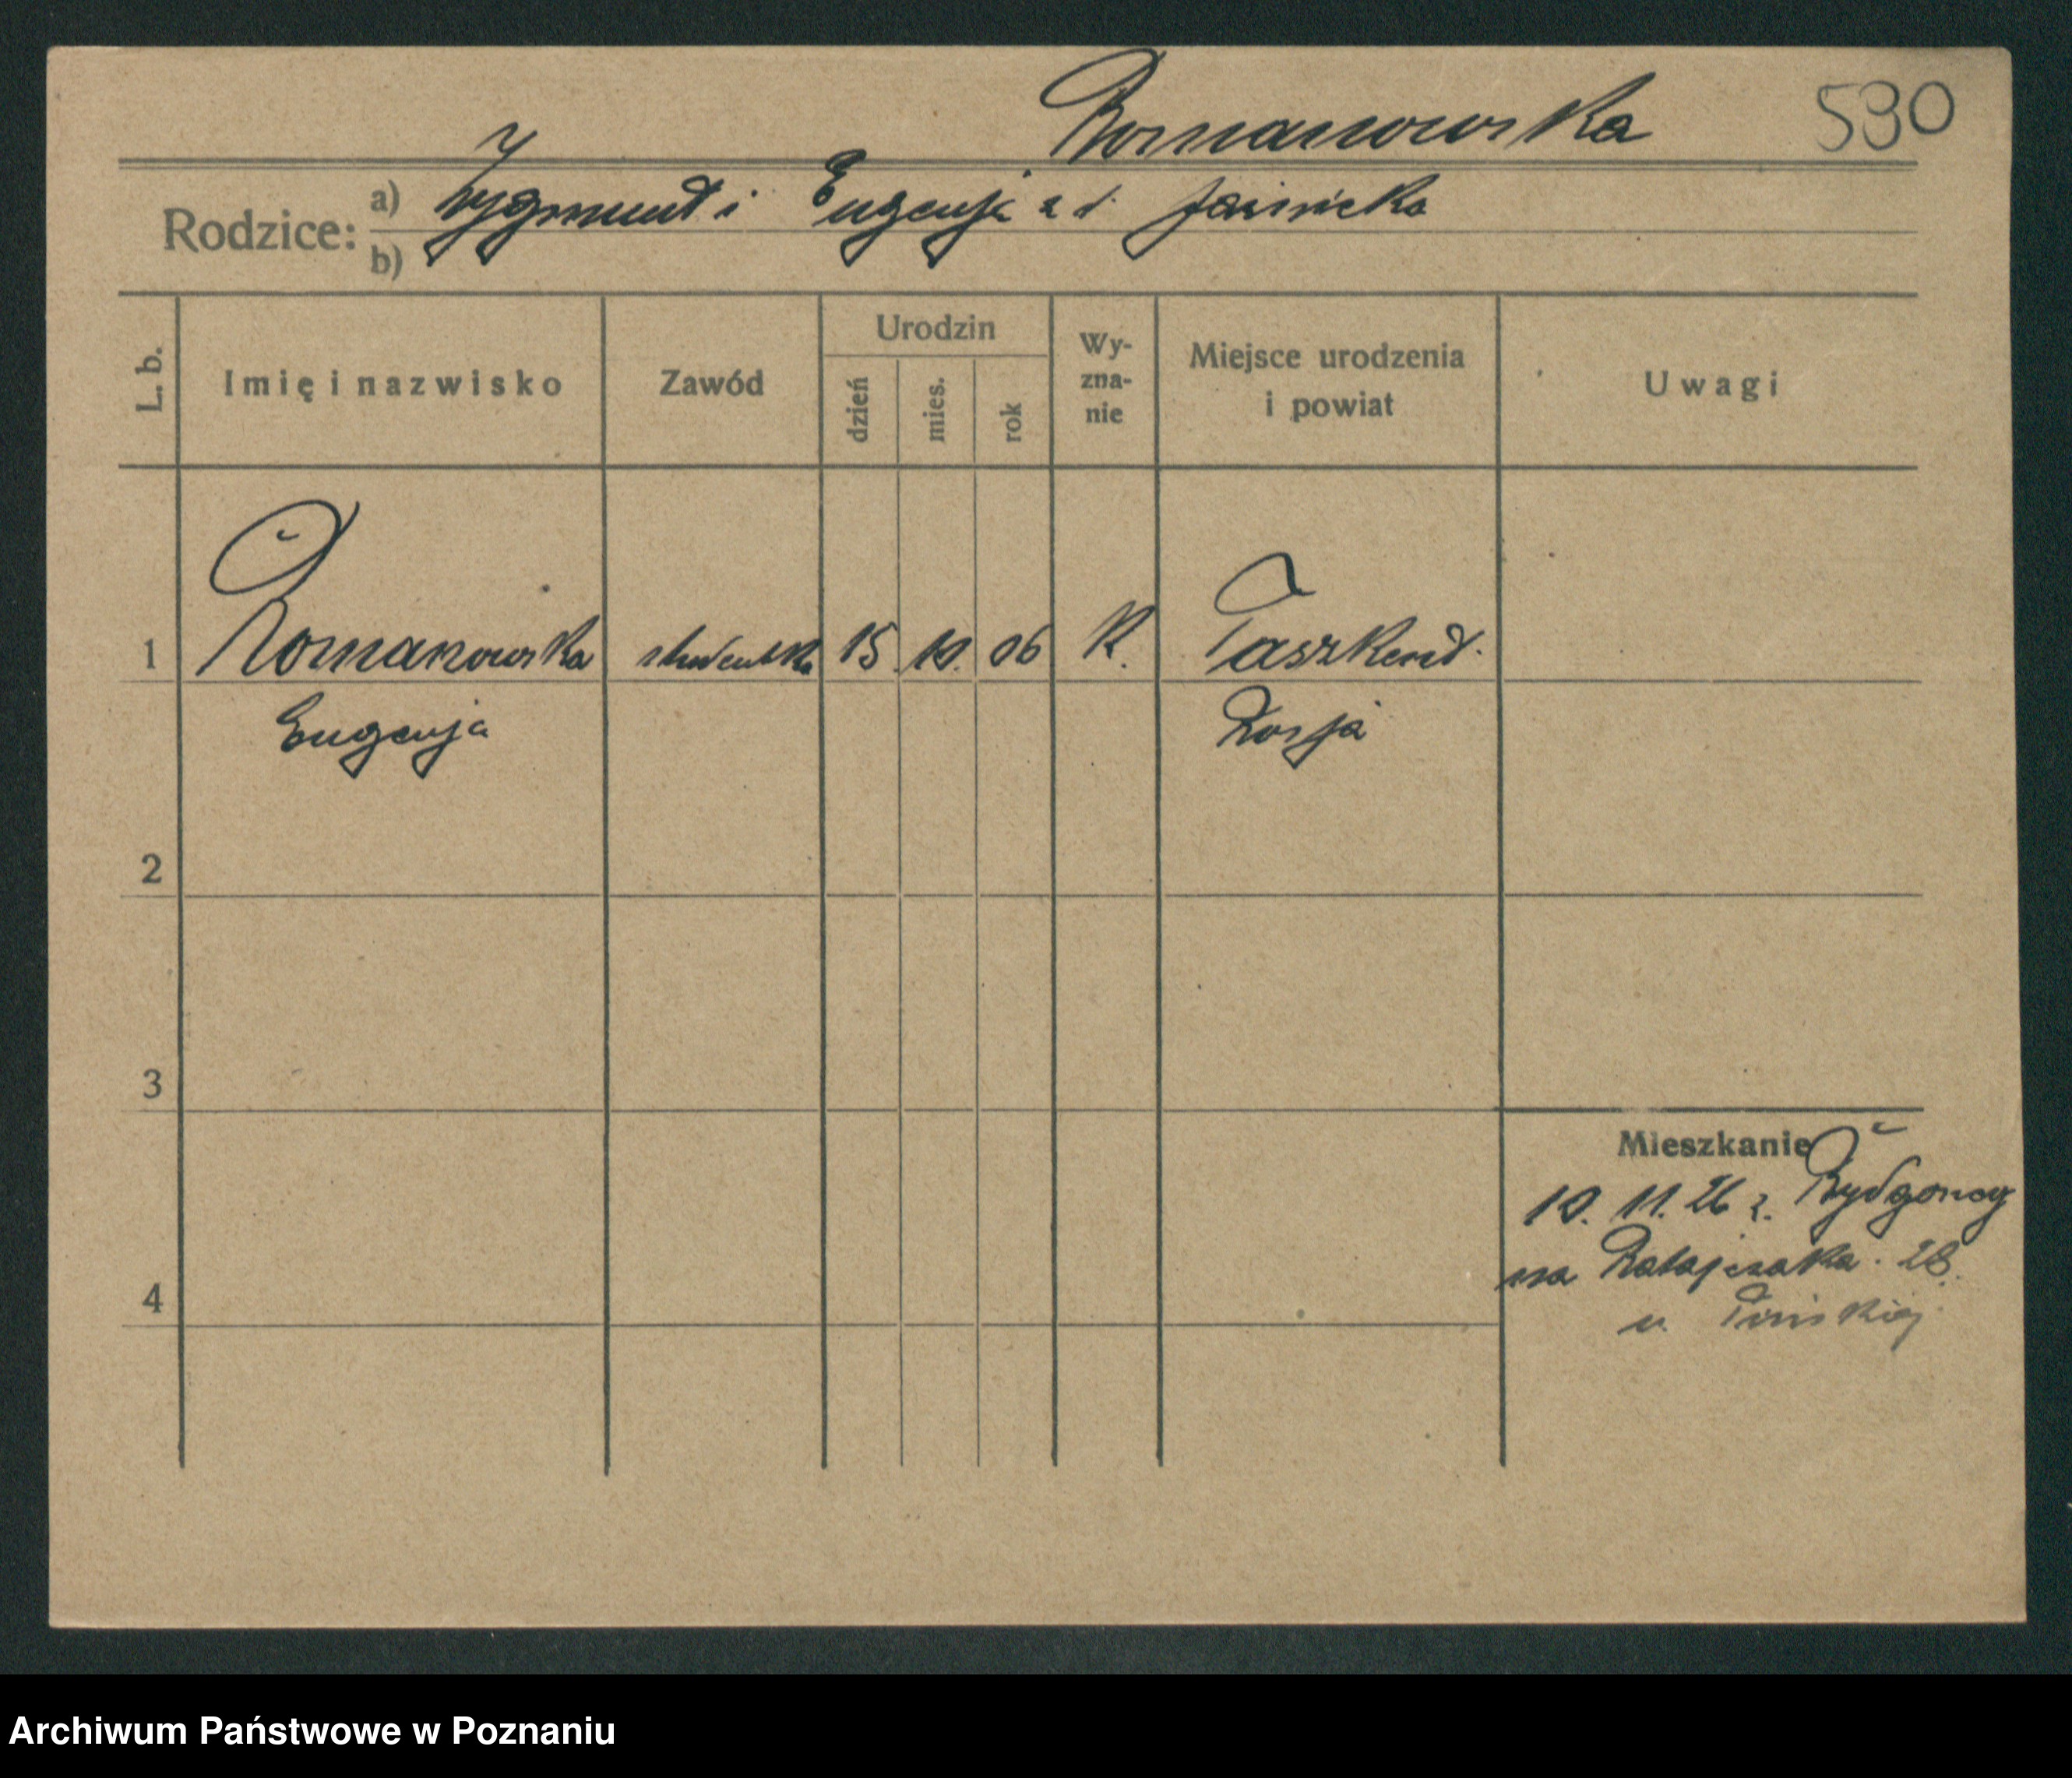 Romanowska 590
Rodzice: a) Zygmunt i Eugenja z d.
b)
L. b.
Imię i nazwisko
Zawód
Urodzin
dzień
mies.
rok
Wy-
zna-
nie
Miejsce urodzenia
i powiat
Uwagi
1 Romanowska studentka 15. 10. 06 K. Taszkend.
Eugenja Rosja
2
3
Mieszkanie
10. 11. 26 z Bydgoszczy
na Ratajczaka. 28.
4
u.
Archiwum Państwowe w Poznaniu